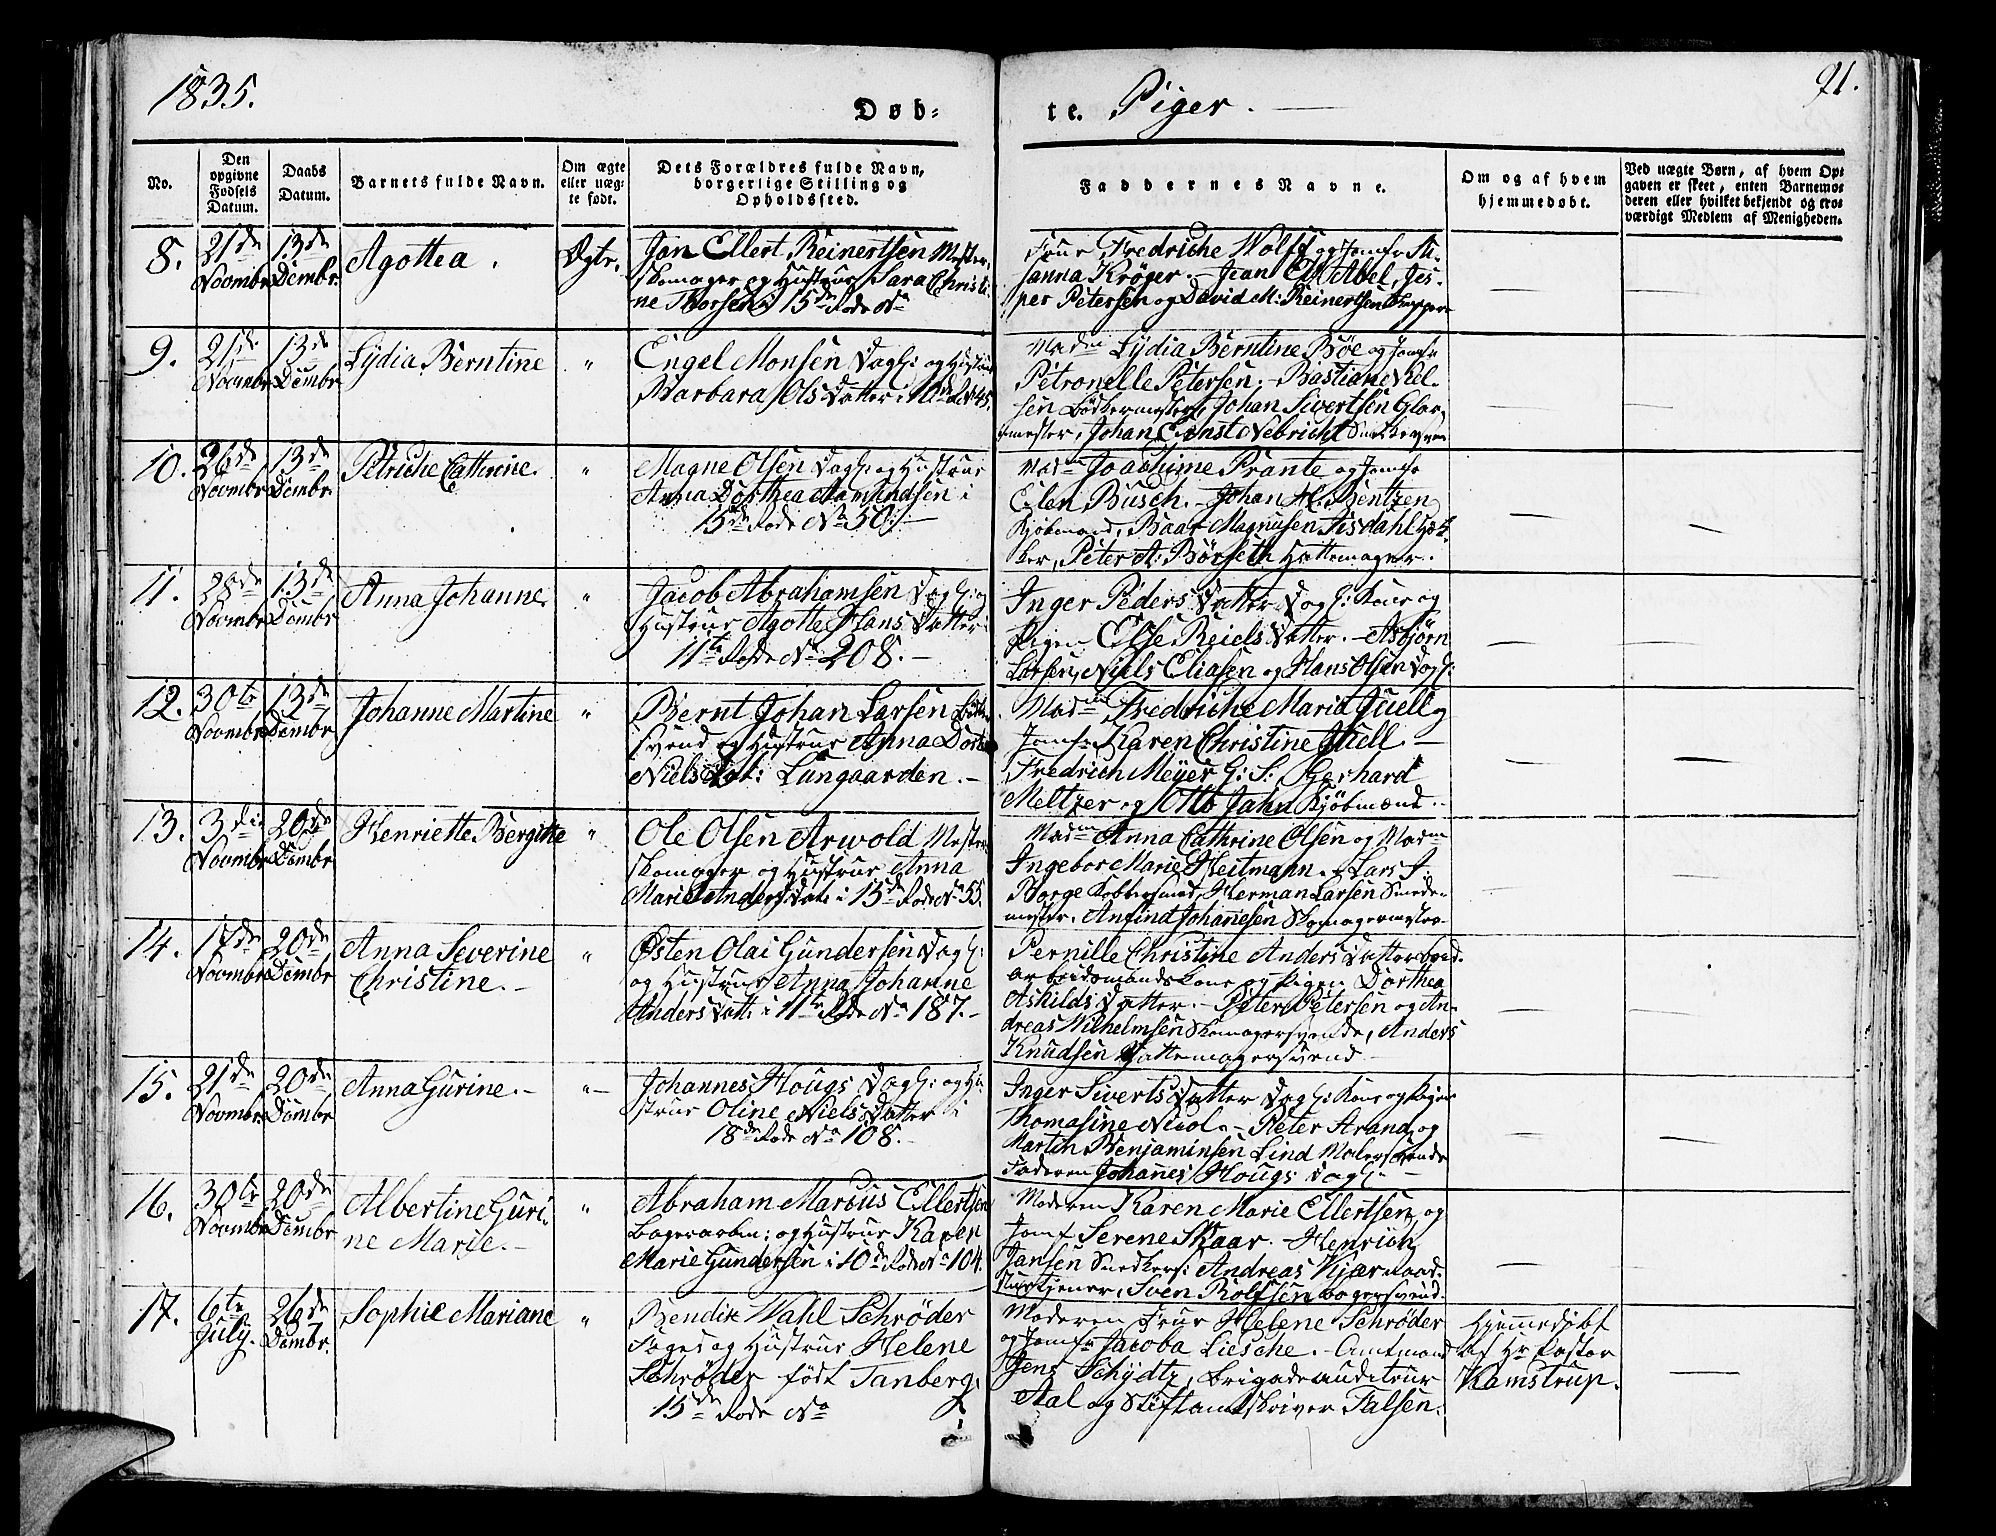 1835.
Døb-
te. Piger.
91.
No.
Den
opgivne
Fødsels
Datum.
Daabs
Datum.
Barnets fulde Navn.
Om ægte
eller uæg-
te født.
Dets Forældres fulde Navn,
borgerlige Stilling og
Opholdssted.
Faddernes Navne.
Om og af hvem
hjemmedøbt.
Ved uægte Børn, af hvem Op-
gaven er skeet, enten Barnemo-
deren eller hvilket bekjendt og tro-
værdigt Medlem af Menigheden.
8.
21de
Novembr.
13de
Dcembr.
Agottea.
Ægte.
Jan Ellert Reinertsen Mester
Skomager og Hustrue Sara Christi-
ne Thorsen i 15de Rode No
Frue Fredriche Wolff og Jomfr
Sanna Krøger. Jean Abel, Jes-
per Petersen og David M: Reinertsen
9.
21de
Novmbr.
13de
Dcembr.
Lydia Berntine
"
Engel Monsen Dagl: og Hustrue
Barbara Ols Datter i
Madm Lydia Berntine Bøe og Jomfr
Petronelle Petersen. Bastian Nel-
sen Bødkermester, Johan Sivertsen Glar-
mester, Johan Ernst Nebricht
10.
26de
Novmbr.
13de
Dcembr.
Petriche Cathrine.
"
Magne Olsen Dagl. og Hustrue
Anna Dorthea Aamundsen i
15de Rode No 50.
Madm Joachime Prante og Jomfr
Elen Busch. Johan H. Bentzen
Kjøbmand, Baar Magnusen Tisdahl
Peter A: Børseth Hattemager.
11.
28de
Novmbr.
13de
Dcembr.
Anna Johanne.
"
Jacob Abrahamsen Dagl: og
Hustrue Agotte Hans Datter
11te Rode No 208.
Inger Peders Datter Dagl: Kone og
Pigen Else Reiels Datter. Asbjørn
Larsen, Niels Eliasen og Hans Olsen Dagl:
12.
30te
Novmbr.
13de
Dcembr.
Johanne Martine
"
Bernt Johan Larsen
svend og Hustrue Anna Dorth
Niels Dat: Lungaarden.
Madm Fredriche Marie Juell og
Jomfr Karen Christine Juell.
Fredrich Meyer G: S: Gerhard
Meltzer og Otto Jahn Kjøbmænd.
13.
3die
Novmbr.
20de
Dcembr.
Henriette Bergitte
"
Ole Olsen Arwold Mester
Skomager og Hustrue Anna
Marie Anders Dat: i 15de Rode No 55.
Madm Anna Cathrine Olsen og Madm
Ingebor Marie Heitmann. Lars J.
Borge Kobbersmed, Herman Larsen Smede-
mester, Anfind Johanesen Skomagermester
14.
17de
Novmbr.
20de
Dcembr.
Anna Severine
Christine.
"
Østen Olai Gundersen Dagl:
og Hustrue Anna Johanne
Anders Datt: i 11te Rode No 187.
Pernille Christine Anders Datter
arbeidsmands Kone og Pigen Dorthea
Askilds Datter. Peter Petersen og An-
dreas Wilhelmsen Skomagersvende, Anders
Knudsen Hattemagersvend
15.
21de
Novmbr.
20de
Dcembr.
Anna Gurine.
"
Johannes Hougs Dagl: og Hu-
strue Oline Niels Datter i
18de Rode No 108.
Inger Siverts Datter Dagl: Kone og Pigen
Thomasine Nicol. Peter Arand og
Martin Benjaminsen Lind Malersvende
Faderen Johanes Hougs Dagl.
16.
30te
Novmbr.
20de
Dcembr.
Albertine Guri-
ne Marie.
"
Abraham Marcus Ellertsen
Bagerarbm: og Hustrue Karen
Marie Gundersen i 10de Rode No 104.
Moderen Karen Marie Ellertsen og
Jomf Serene Skaar. Henrich
Jansen Snedkers: Andreas Kjær Raad-
stuetjener, Sven Rolfsen bagersvend.
17.
6te
July.
26de
Dcembr.
Sophie Mariane
"
Bendix Wahl Schrøder
Foged og Hustrue Helene
Schrøder født Tanberg,
15de Rode No
Moderen Frue Helene Schrøder
og Jomfr Jacoba Liesche. Amtmand
Jens Schydtz, Brigadeauditeur
Aal og Stiftamtskriver Falsen.
Hjemmedøbt
af Hr. Pastor
Kamstrup.